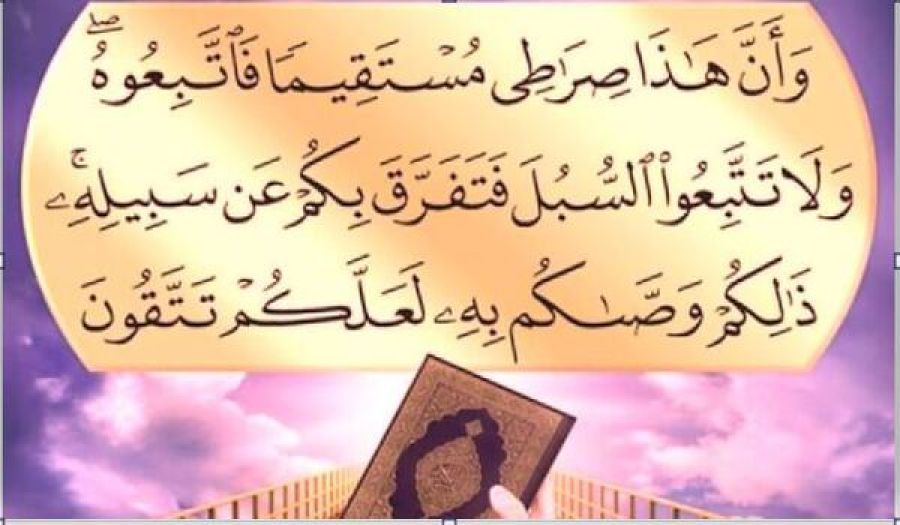 وَأَنَّ هَٰذَا صِرَٰطِى مُسْتَقِيمًا فَٱتَّبِعُوهُ ۖ
وَلَا تَتَّبِعُوا۟ ٱلسُّبُلَ فَتَفَرَّقَ بِكُمْ عَن سَبِيلِهِۦ ۚ
ذَٰلِكُمْ وَصَّىٰكُم بِهِۦ لَعَلَّكُمْ تَتَّقُونَ